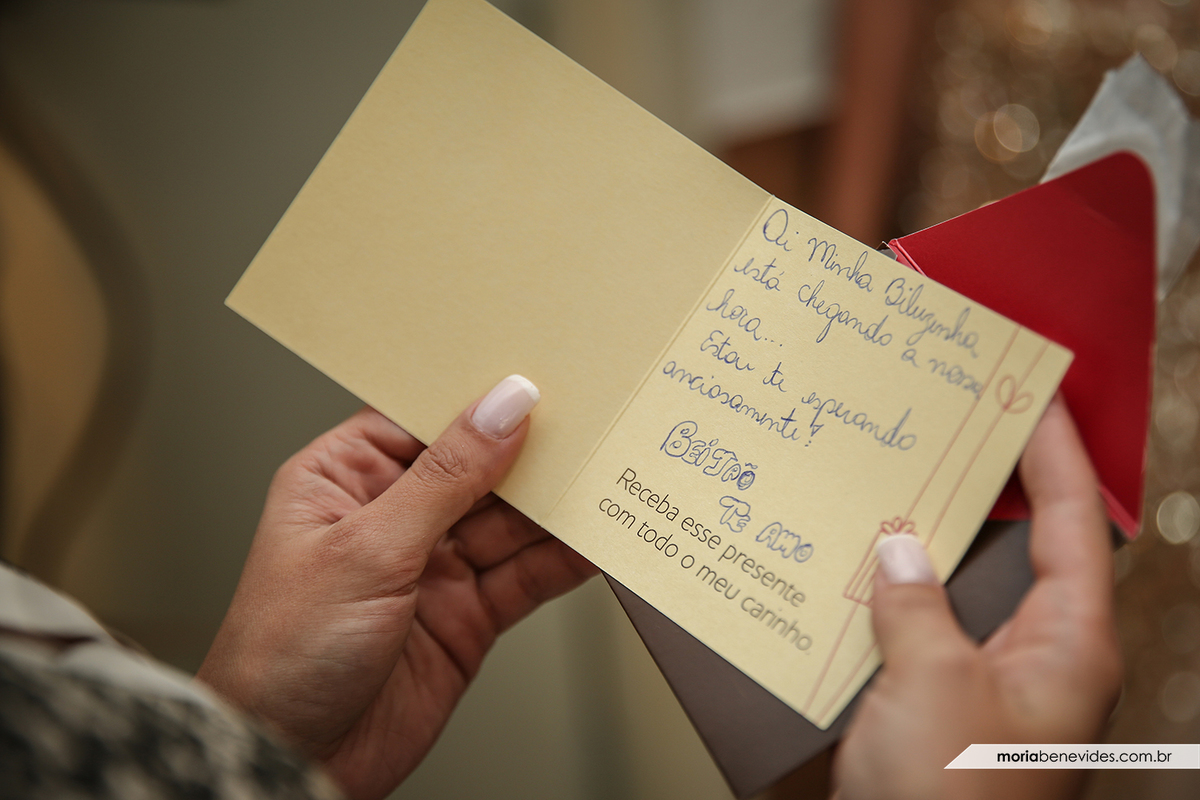 Oi Minha Biluzinha
está chegando a nossa
hora...
Estou te esperando
anciosamente!
BEIJÃO
TE AMO
Receba esse presente
com todo o meu carinho.
moriabenevides.com.br